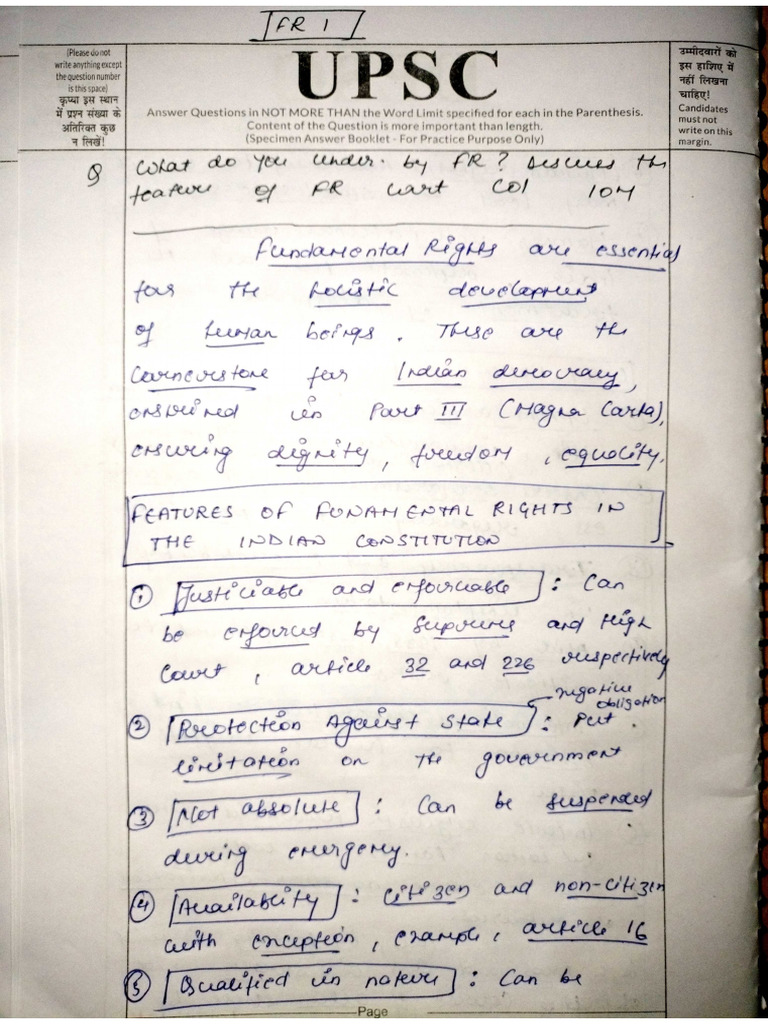 FR 1
(Please do not
write anything except
the question number
is this space)
कृप्या इस स्थान
में प्रश्न संख्या के
अतिरिक्त कुछ
न लिखें!
UPSC
Answer Questions in NOT MORE THAN the Word Limit specified for each in the Parenthesis.
Content of the Question is more important than length.
(Specimen Answer Booklet - For Practice Purpose Only)
उम्मीदवारों को
इस हाशिए में
नहीं लिखना
चाहिए!
Candidates
must not
write on this
margin.
Q What do you under. by FR? Discuss the
feature of FR wart COI 10M
Fundamental Rights are essential
for the holistic development
of human beings. These are the
cornerstone for Indian democracy,
enshrined in Part III (Magna Carta),
ensuring dignity, freedom, equality.
FEATURES OF FUNAMENTAL RIGHTS IN
THE INDIAN CONSTITUTION
① Justiciable and enforceable : Can
be enforced by Supreme and High
Court, article 32 and 226 respectively
negative
obligation
② Protection Against State : Put
limitation on the government
③ Not absolute : Can be suspended
during emergency.
④ Availability : citizen and non-citizen
with exception, example, article 16
⑤ Qualified in nature : Can be
Page